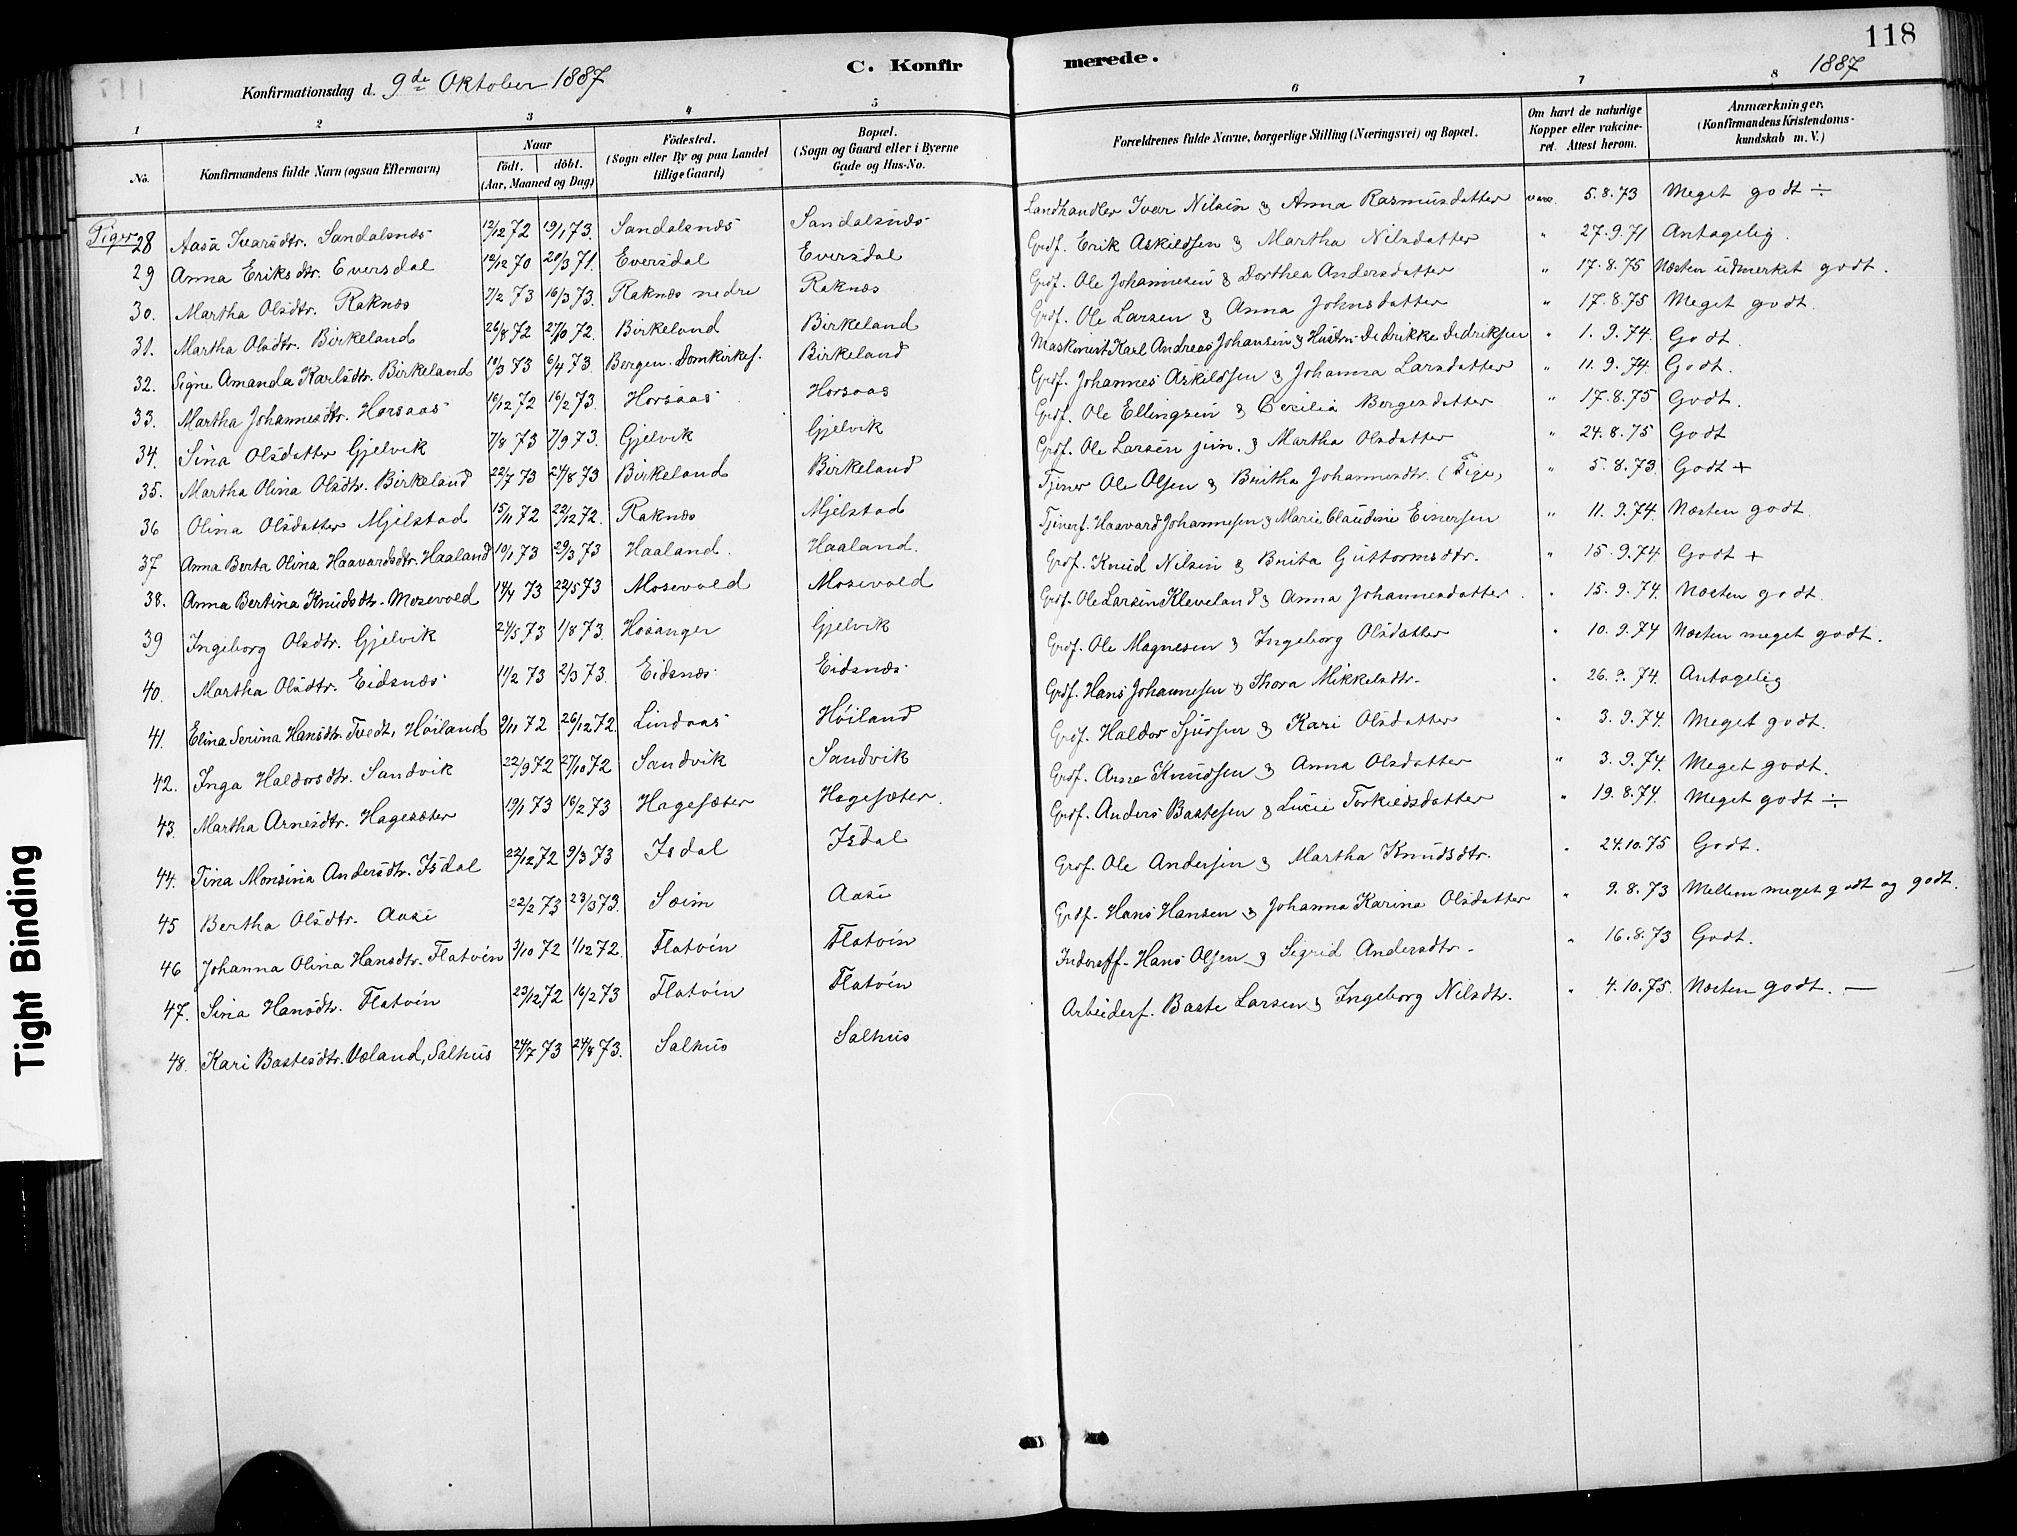 118
1887
Konfirmationsdag d. 9de Oktober 1887
C. Konfirmerede.
1 2 3 4 5 6 7 8
No. Konfirmandens fulde Navn (ogsaa Efternavn) Naar født. døbt. (Aar, Maaned og Dag) Födested. (Sogn eller By og paa Landet tillige Gaard) Bopæl. (Sogn og Gaard eller i Byerne Gade og Hus-No. Forældrenes fulde Navne, borgerlige Stilling (Næringsvei) og Bopæl. Om havt de naturlige Kopper eller vakcineret. Attest herom. Anmærkninger. (Konfirmandens Kristendomskundskab m. V.)
Piger
28 Aasa Ivarsdtr. Sandalsnæs 12/12 72 19/1 73. Sandalsnæs Sandalsnæs Landhandler Ivar Nilsen & Anna Rasmusdatter vacc. 5.8.73 Meget godt ÷
29 Anna Eriksdtr. Eversdal 12/12 70 20/3 71. Eversdal Eversdal Grdf. Erik Askildsen & Martha Nilsdatter " 27.9.71 Antagelig.
30. Martha Olsdtr. Raknæs 7/2 73 16/3 73. Raknæs nedre Raknæs Grdf. Ole Johannesen & Dorthea Andersdatter " 17.8.75 Næsten udmerket godt.
31. Martha Olsdtr. Birkeland 26/8 72 27/10 72. Birkeland Birkeland Grdf. Ole Larsen & Anna Johnsdatter " 17.8.75 Meget godt.
32. Signe Amanda Karlsdtr. Birkeland 19/3 73 6/4 73. Bergen. Domkirkes. Birkeland Maskinist Karl Andreas Johansen & Hustru Didrikke Didriksen " 1.9.74. Godt.
33. Martha Johannesdtr. Horsaas 16/12 72 16/2 73. Horsaas Horsaas Grdf. Johannes Askildsen & Johanna Larsdatter " 11.9.74. Godt.
34. Sina Olsdatter Gjelvik 7/8 73 7/9 73. Gjelvik Gjelvik Grdf. Ole Ellingsen & Cecilia Bergesdatter " 17.8.75 Godt.
35. Martha Olina Olsdtr. Birkeland 22/7 73 24/8 73 Birkeland Birkeland Grdf. Ole Larsen jun. & Martha Olsdatter " 24.8.75 Godt
36 Olina Olsdatter Mjelstad 15/11 72 22/12 72. Raknæs Mjelstad Tjener Ole Olsen & Britha Johannesdtr. (Pige) " 5.8.73. Godt +
37 Anna Berta Olina Haavardsdtr. Haaland 19/1 73 29/3 73 Haaland. Haaland. Tjenerf. Haavard Johannesen & Marie Claudine Einersen " 11.9.74. Næsten godt.
38. Anna Bertina Knudsdtr. Mosevold 14/4 73 22/5 73 Mosevold Mosevold Grdf. Knud Nilsen & Brita Guttormsdtr. " 15.9.74. Godt +
39 Ingeborg Olsdtr. Gjelvik 24/5 73 1/8 73. Hosanger Gjelvik Grdf. Ole Larsen Kleveland & Anna Johannesdatter. " 15.9.74. Næsten godt.
40. Martha Olsdtr. Eidsnæs 11/2 73 2/3 73. Eidsnæs. Eidsnæs. Grdf. Ole Magnesen & Ingeborg Olsdatter " 10.9.74 Næsten meget godt.
41. Elina Serina Hansdtr. Tvedt, Høiland 9/11 72 26/12 72. Lindaas Høiland Grdf. Hans Johannesen & Thora Mikkelsdtr. " 26.9.74. Antagelig
42. Inga Haldorsdtr. Sandvik 22/9 72 27/10 72 Sandvik Sandvik Grdf. Haldor Sjursen & Kari Olsdatter " 3.9.74. Meget godt.
43. Martha Arnesdtr. Hagesæter 19/1 73 16/2 73 Hagesæter Hagesæter. Grdf. Arne Knudsen & Anna Olsdatter " 3.9.74. Meget godt.
44. Tina Monsina Andersdtr. Isdal 22/12 72 9/3 73 Isdal Isdal Grdf. Anders Bastesen & Lucie Torkildsdatter " 19.8.74. Meget godt ÷
45 Bertha Olsdtr. Aase 22/2 73 23/3 73. Sæim Aase Grdf. Ole Andersen & Martha Knudsdtr. " 24.10.75 Godt.
46 Johanna Olina Hansdtr. Flatøen 9/10 72 1/12 72. Flatøen Flatøen Grdf. Hans Hansen & Johanna Karina Olsdatter " 9.8.73 Mellem meget godt og godt.
47. Sina Hansdtr. Flatøen 23/12 72 16/2 73 Flatøen Flatøen Inderstf. Hans Olsen & Sigrid Andersdtr. " 16.8.73 Godt.
48. Kari Bastesdtr. Væland, Salhus 24/7 73 24/8 73. Salhus Salhus Arbeiderf. Baste Larsen & Ingeborg Nilsdtr. " 4.10.75. Næsten godt. —
Tight Binding